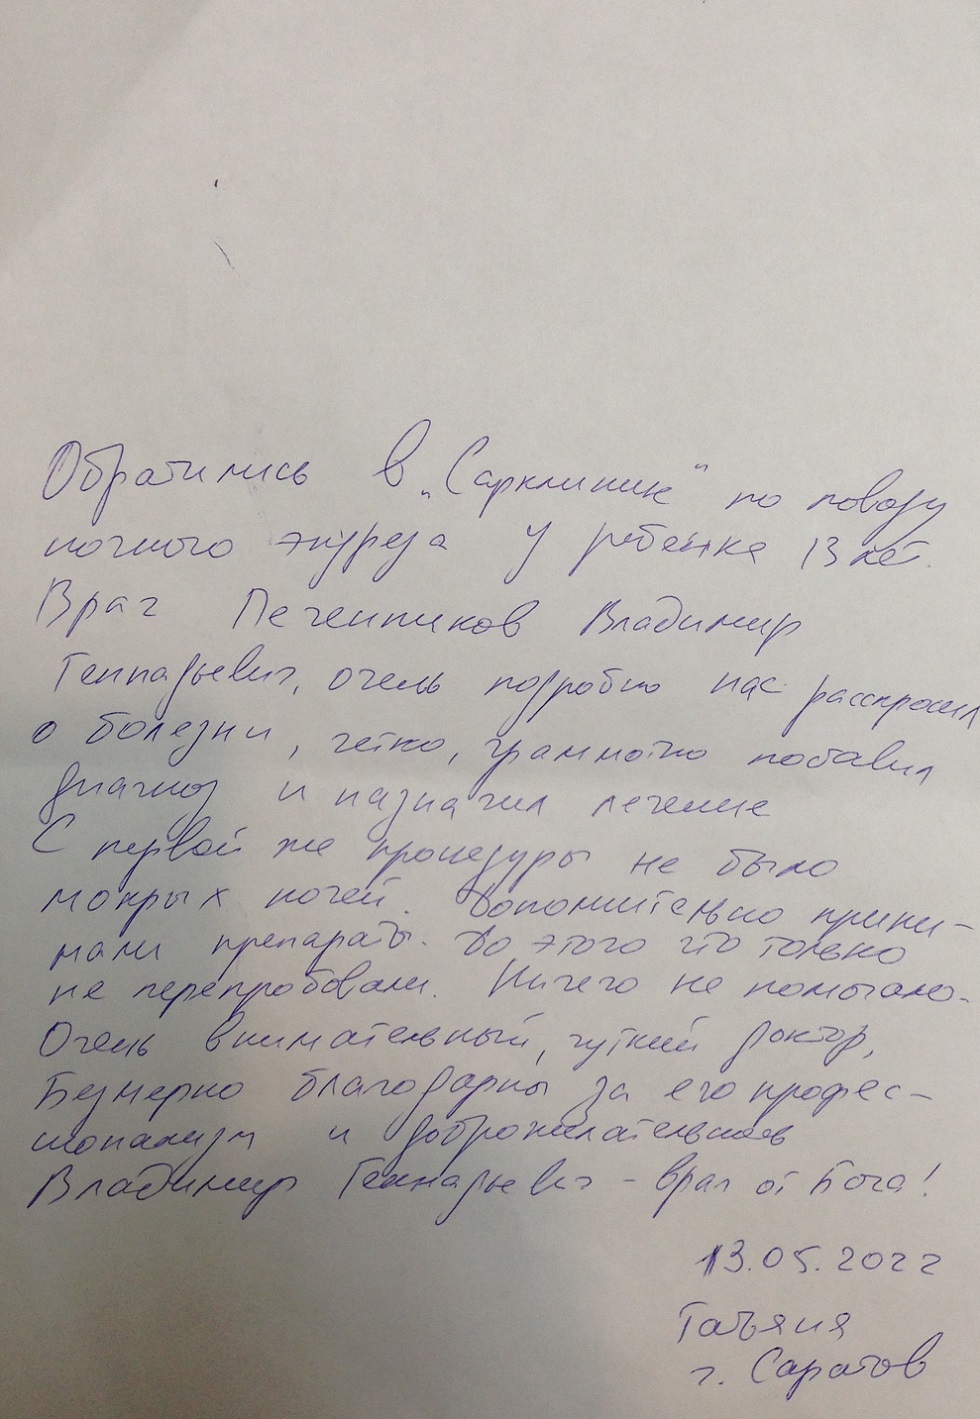 Обратились в „Сарклиник" по поводу
ночного энуреза у ребенка 13 лет.
Врач Печенников Владимир
Геннадьевич, очень подробно нас расспросил
о болезни, четко, грамотно поставил
диагноз и назначил лечение
С первой же процедуры не было
мокрых ночей. Дополнительно прини-
мали препараты. До этого что только
не перепробовали. Ничего не помогало.
Очень внимательный, чуткий доктор,
Безмерно благодарны за его профес-
сионализм и доброжелательность
Владимир Геннадьевич - врач от Бога!
13.05.2022
Татьяна
г. Саратов